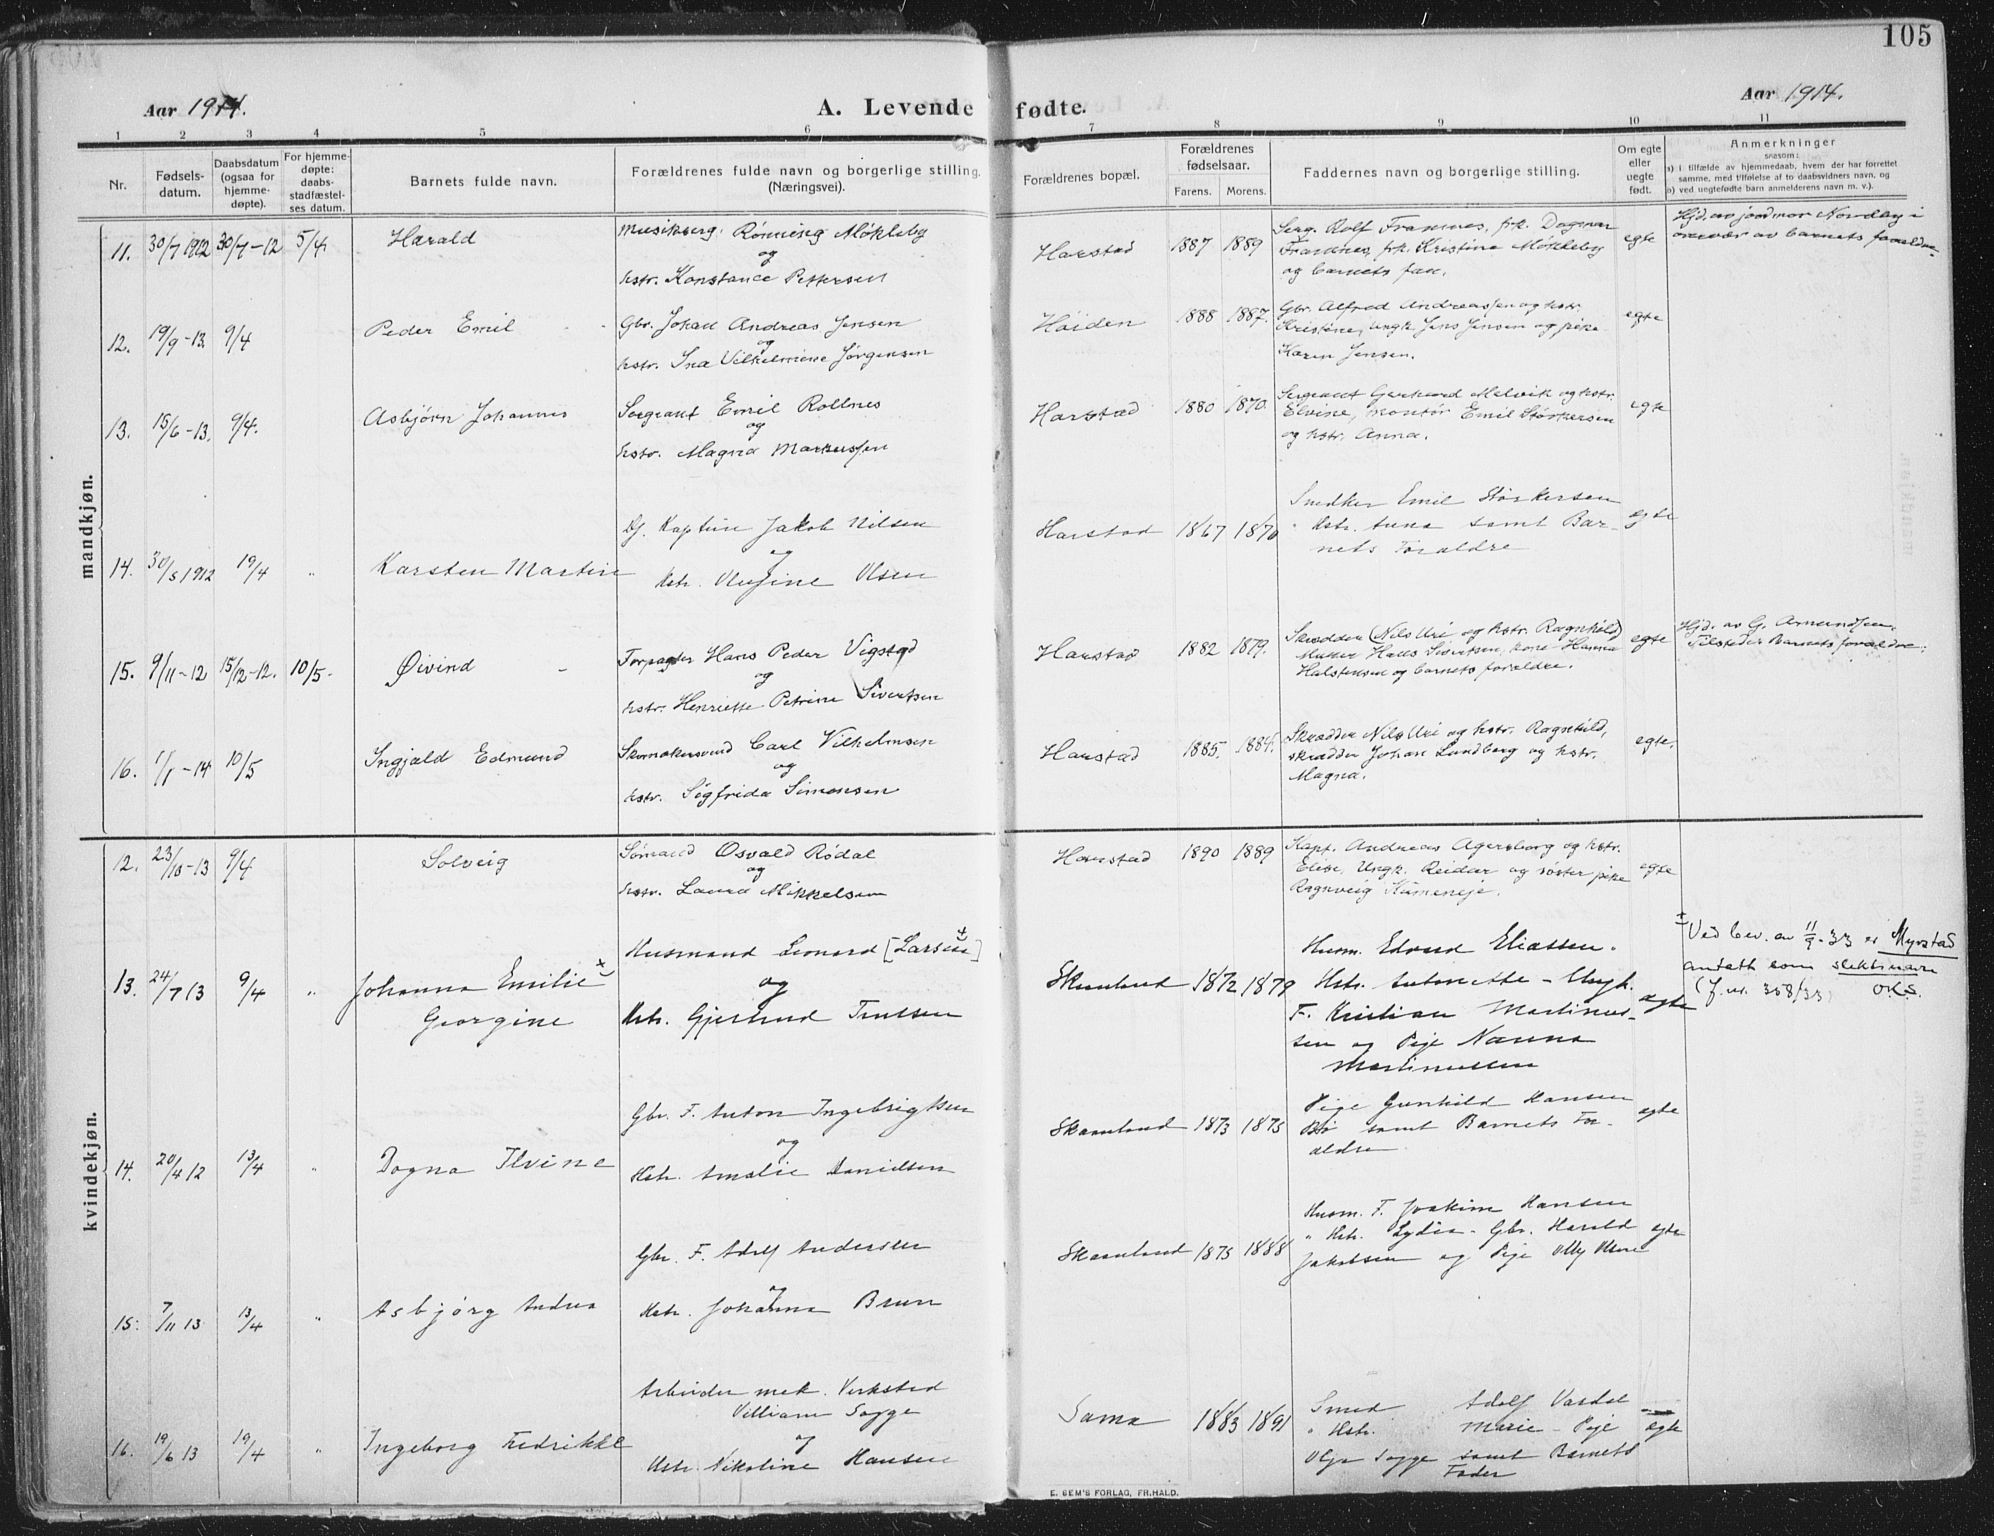 105
Aar 1914.
A. Levende fødte.
Aar 1914.
1 2 3 4 5 6 7 8 9 10 11
Nr.
Fødsels-
datum.
Daabsdatum
(ogsaa for
hjemme-
døpte).
For hjemme-
døpte:
daabs-
stadfæstel-
ses datum.
Barnets fulde navn.
Forældrenes fulde navn og borgerlige stilling
(Næringsvei).
Forældrenes bopæl.
Forældrenes
fødselsaar.
Farens. Morens.
Faddernes navn og borgerlige stilling.
Om egte
eller
uegte
født.
Anmerkninger
saasom:
a) i tilfælde av hjemmedaab, hvem der har forrettet
samme, med tilføielse af to daabsvidners navn, og
b) ved uegtefødte barn anmelderens navn m. v.).
mandkjøn.
11. 30/7 1912 30/7-12 5/4 Harald
Musikserg. Rønning Møkleby
og
hstr. Konstance Pettersen
Harstad 1887 1889
Serg. Rolf Framnes, frk. Dagmar
Framnes, frk. Kristine Møkleby
og barnets far.
egte
Hjd. av jordmor Nordby i
overvær av barnets forældre.
12. 19/9-13. 9/4 Peder Emil
Gbr. Johan Andreas Jensen
og
hstr. Ina Vilhelmine Jørgensen
Høiden 1888 1887.
Gbr. Alfred Andreassen og hstr.
Kristine, ungk. Jens Jensen og pike
Karen Jensen.
egte
13. 15/6-13. 9/4. Asbjørn Johannes
Sergeant Emil Rollnes
og
hstr. Magna Markussen
Harstad 1880 1870.
Sergeant Gerhard Melvik og hstr.
Elvine, montør Emil Størkersen
og hstr. Anna.
egte
14. 30/5 1912 19/4 " Karsten Martin
Kaptein Jakob Nilsen
og
Hstr. Olsen
Harstad 1867 1870
Snedker Emil Størkersen
" Hstr. Anna samt Bar-
nets Foraldre
egte
15. 9/11-12 15/12-12. 10/5- Øivind
Forpagter Hans Peder Vigstad
og
hstr. Henriette Petrine Sivertsen
Harstad 1882 1879.
Skrædder Nils Uri og hstr. Ragnhild,
Maler Hans Sivertsen, kone Hanna
Halstensen og barnets forældre.
egte
Hjd. av G. Amundsen.
Tilstede: Barnets forældre.
16. 1/1-14 10/5 Ingjald Edmund
Skomakersvend Carl Vilhelmsen
og
hstr. Sigfrida Simonsen
Harstad 1885. 1884.
Skrædder Nils Uri og hstr. Ragnhild,
skrædder Johan Lundberg og hstr.
Magna.
egte.
kvindekjøn.
12. 23/10-13 9/4 Solveig
Sømand Osvald Rødal
og
hstr. Laura Mikkelsen
Harstad 1890 1889
Kapt. Andreas Agersborg og hstr.
Elise, Ungk. Reidar og søster pike
Ragnveig
egte
13. 24/7 13 9/4 " Johanna Emilie +
Georgine
Husmand Leonard [Larsen +]
og
Hstr. Gjertrud Trulsen
Skaanland 1872 1879
Husm. Edvard Eliassen.
Hstr. Antonette - Ungk.
F. Kristian Martinus-
sen og Pige Nanna
Martinussen
egte
+ Ved bev. av 11/9-33 er Myrstad
antatt som slektsnavn
(J. nr. 358/33) O.K.S.
14. 20/4 12 13/4 " Dagna Elvine
Gbr. F. Anton Ingebrigtsen
og
Hstr. Amalie Danielsen
Skaanland 1873 1875
Pige Gunhild Hansen
Bø samt Barnets For-
ældre
egte
15. 7/11 13 13/4 " Asbjørg Andrea
Gbr. F. Adolf Andersen
og
Hstr. Johanna Brun
Skaanland 1875 1888
Husm. F. Joakim Hansen
" Hstr. Lydia - Gbr. Harald
Jakobsen og Pige Olsen
egte
16. 19/6 13 19/4 " Ingeborg Fredrikke
Arbeider mek. Verksted
Villiam Sagge
og
Hstr. Nikoline Hansen
Sama 1883 1891
Smed Adolf Vasdal
" Hstr. Marie - Pige
Olga Sagge samt Barnets
Fader
egte
E. SEM'S FORLAG, FR.HALD.